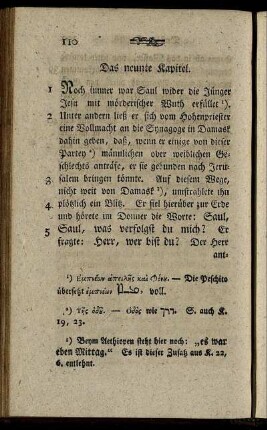 110
Das neunte Kapitel.
1 Noch immer war Saul wider die Jünger
Jesu mit mörderischer Wuth erfüllet ¹).
2 Unter andern ließ er sich vom Hohenpriester
eine Vollmacht an die Synagoge in Damask
dahin geben, daß, wenn er einige von dieser
Partey ²) männlichen oder weiblichen Ge-
schlechts anträfe, er sie gebunden nach Jeru-
3 salem bringen könnte. Auf diesem Wege,
nicht weit von Damask ³), umstrahlete ihn
4 plötzlich ein Blitz. Er fiel hierüber zur Erde
und hörete im Donner die Worte: Saul,
5 Saul, was verfolgst du mich? Er
fragte: Herr, wer bist du? Der Herr
ant-
¹) ἐμπνέων ἀπειλῆς καὶ φόνου. — Die Peschito
übersetzt ἐμπνέων voll.
²) τῆς ὁδοῦ. — ὁδός wie דרך. S. auch K.
19, 23.
³) Beym Aethiopen steht hier noch: „es war
eben Mittag.“ Es ist dieser Zusatz aus K. 22,
6. entlehnt.